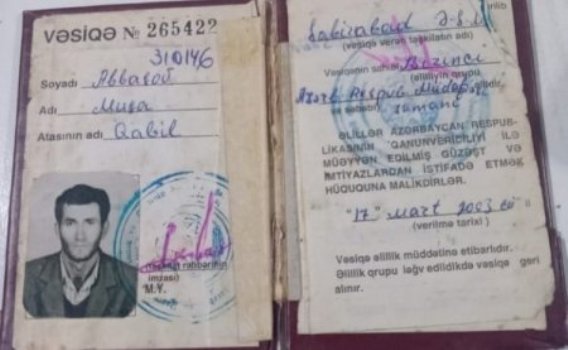 VƏSİQƏ № 265422
310146
Soyadı Abbasov
Adı Musa
Atasının adı Qabil
(təşkilat rəhbərinin
imzası)
M.Y.
Sabirabad Ə.Ş.
(vəsiqə verən təşkilatın adı)
Vəsiqənin sahibi
(əlilliyin qrupu
Azərb. Respub. Müdaf.
və səbəbi) zamanı
ƏLİLLƏR AZƏRBAYCAN RESPUB-
LİKASININ QANUNVERİCİLİYİ İLƏ
MÜƏYYƏN EDİLMİŞ GÜZƏŞT VƏ
İMTİYAZLARDAN İSTİFADƏ ETMƏK
HÜQUQUNA MALİKDİRLƏR.
"17" Mart 2003 cü il
(verilmə tarixi)
Vəsiqə əlillik müddətinə etibarlıdır.
Əlillik qrupu ləğv edildikdə vəsiqə geri
alınır.